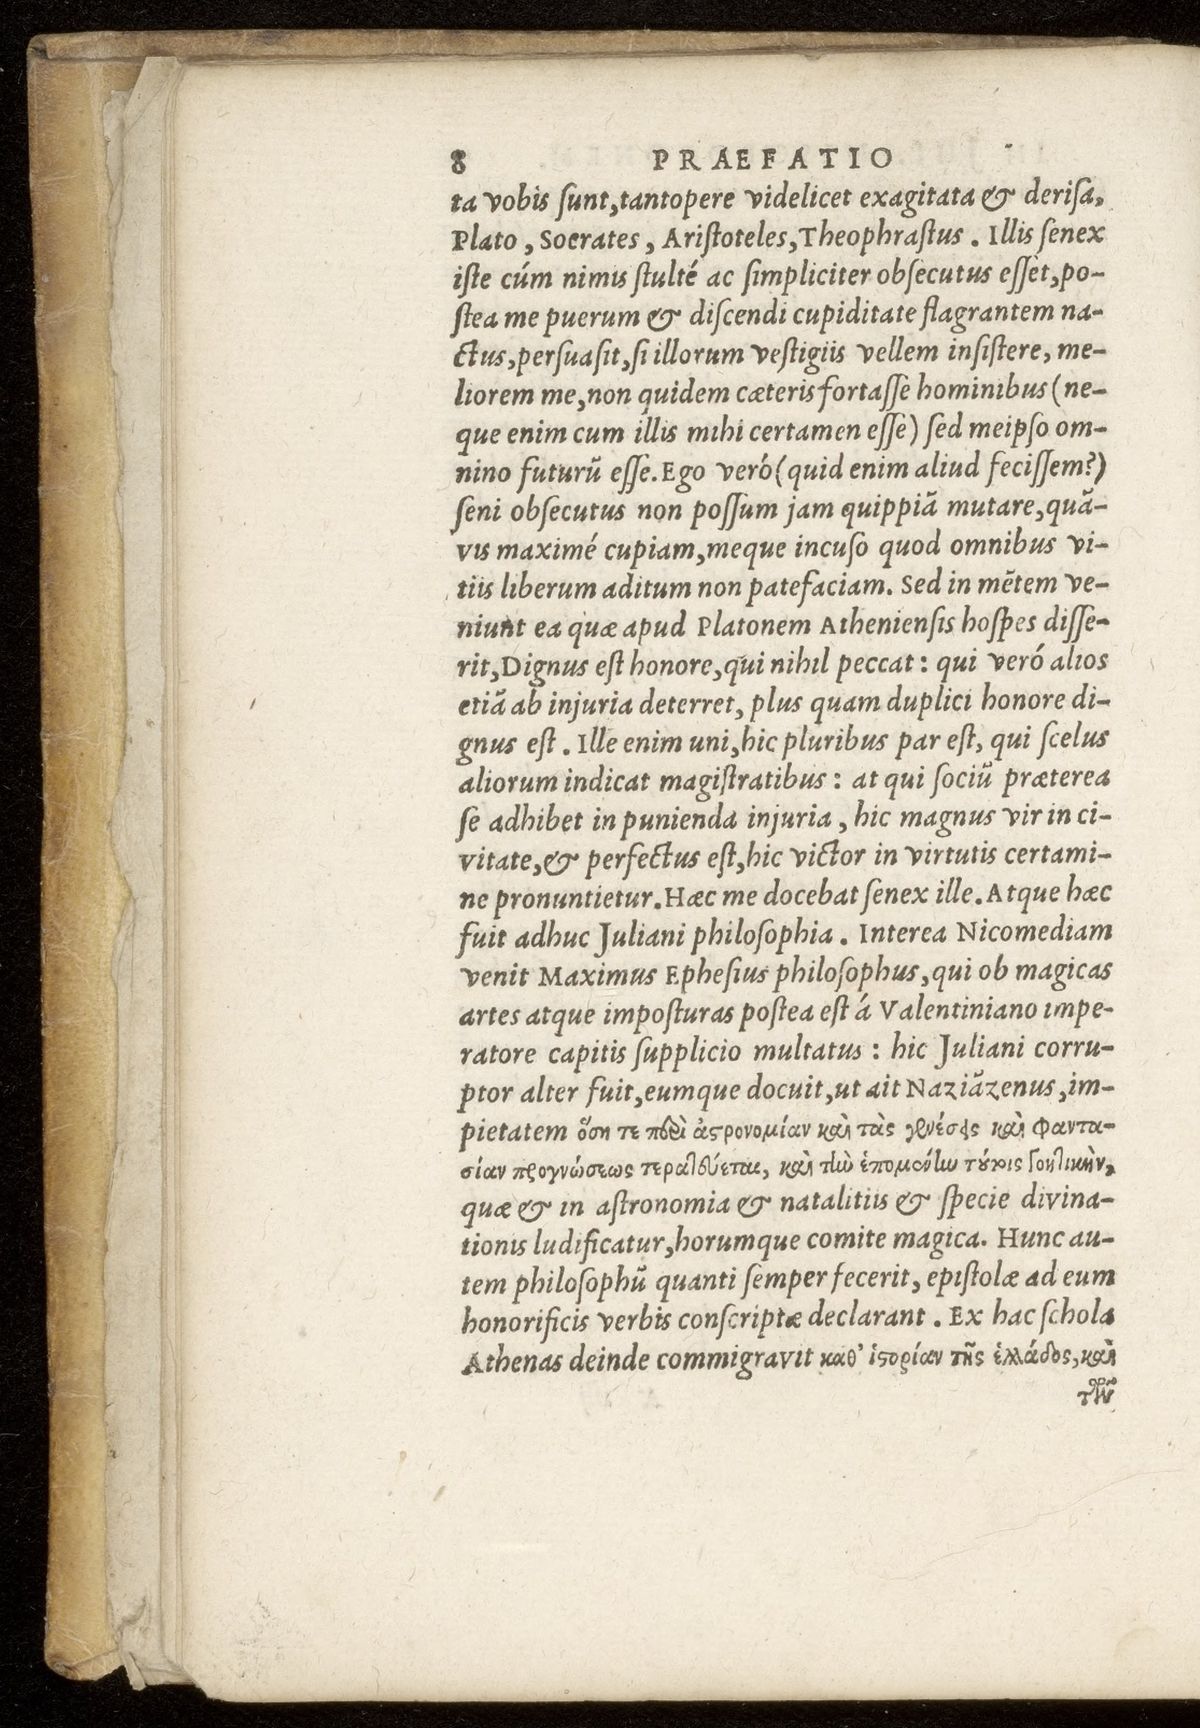 8 PRAEFATIO
ta vobis ſunt,tantopere videlicet exagitata & deriſa,
Plato , Socrates , Ariſtoteles,Theophraſtus . Illis ſenex
iſte cúm nimis ſtulté ac ſimpliciter obſecutus eſſet,po-
ſtea me puerum & diſcendi cupiditate flagrantem na-
ctus,perſuaſit,ſi illorum veſtigiis vellem inſiſtere, me-
liorem me,non quidem cæteris fortaſſe hominibus (ne-
que enim cum illis mihi certamen eſſe) ſed meipſo om-
nino futurū eſſe. Ego veró (quid enim aliud feciſſem?)
ſeni obſecutus non poſſum jam quippiā mutare,quā-
vis maximé cupiam,meque incuſo quod omnibus vi-
tiis liberum aditum non patefaciam. Sed in mētem ve-
niunt ea quæ apud Platonem Athenienſis hoſpes diſſe-
rit,Dignus eſt honore,qui nihil peccat : qui veró alios
etiā ab injuria deterret, plus quam duplici honore di-
gnus eſt . Ille enim uni,hic pluribus par eſt, qui ſcelus
aliorum indicat magiſtratibus : at qui ſociū præterea
ſe adhibet in punienda injuria , hic magnus vir in ci-
vitate,& perfectus eſt,hic victor in virtutis certami-
ne pronuntietur.Hæc me docebat ſenex ille. Atque hæc
fuit adhuc Juliani philoſophia . Interea Nicomediam
venit Maximus Epheſius philoſophus,qui ob magicas
artes atque impoſturas poſtea eſt á Valentiniano impe-
ratore capitis ſupplicio multatus : hic Juliani corru-
ptor alter fuit,eumque docuit,ut ait Naziāzenus,im-
pietatem ὅση τε περὶ ἀςρονομίαν καὶ τὰς γενέσεις καὶ φαντα-
σίαν προγνώσεως τερατεύεται, καὶ τὴν ἑπομένην τούτοις γοητικὴν,
quæ & in aſtronomia & natalitiis & ſpecie divina-
tionis ludificatur,horumque comite magica. Hunc au-
tem philoſophū quanti ſemper fecerit, epiſtolæ ad eum
honorificis verbis conſcriptæ declarant . Ex hac ſchola
Athenas deinde commigravit καθ' ἱςορίαν τῆς ἑλλάδος, καὶ
τῶν